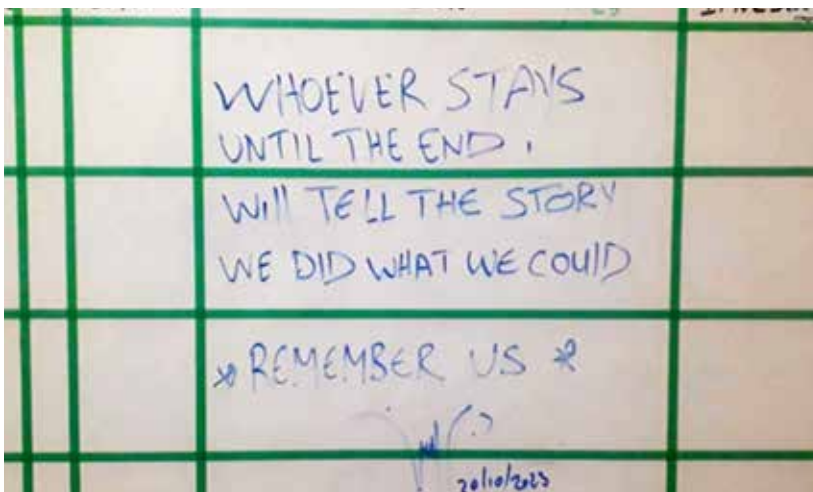 WHOEVER STAYS
UNTIL THE END,
WIll TELL THE STORY
WE DID WHAT WE COULD
*REMEMBER US *
20/10/2023